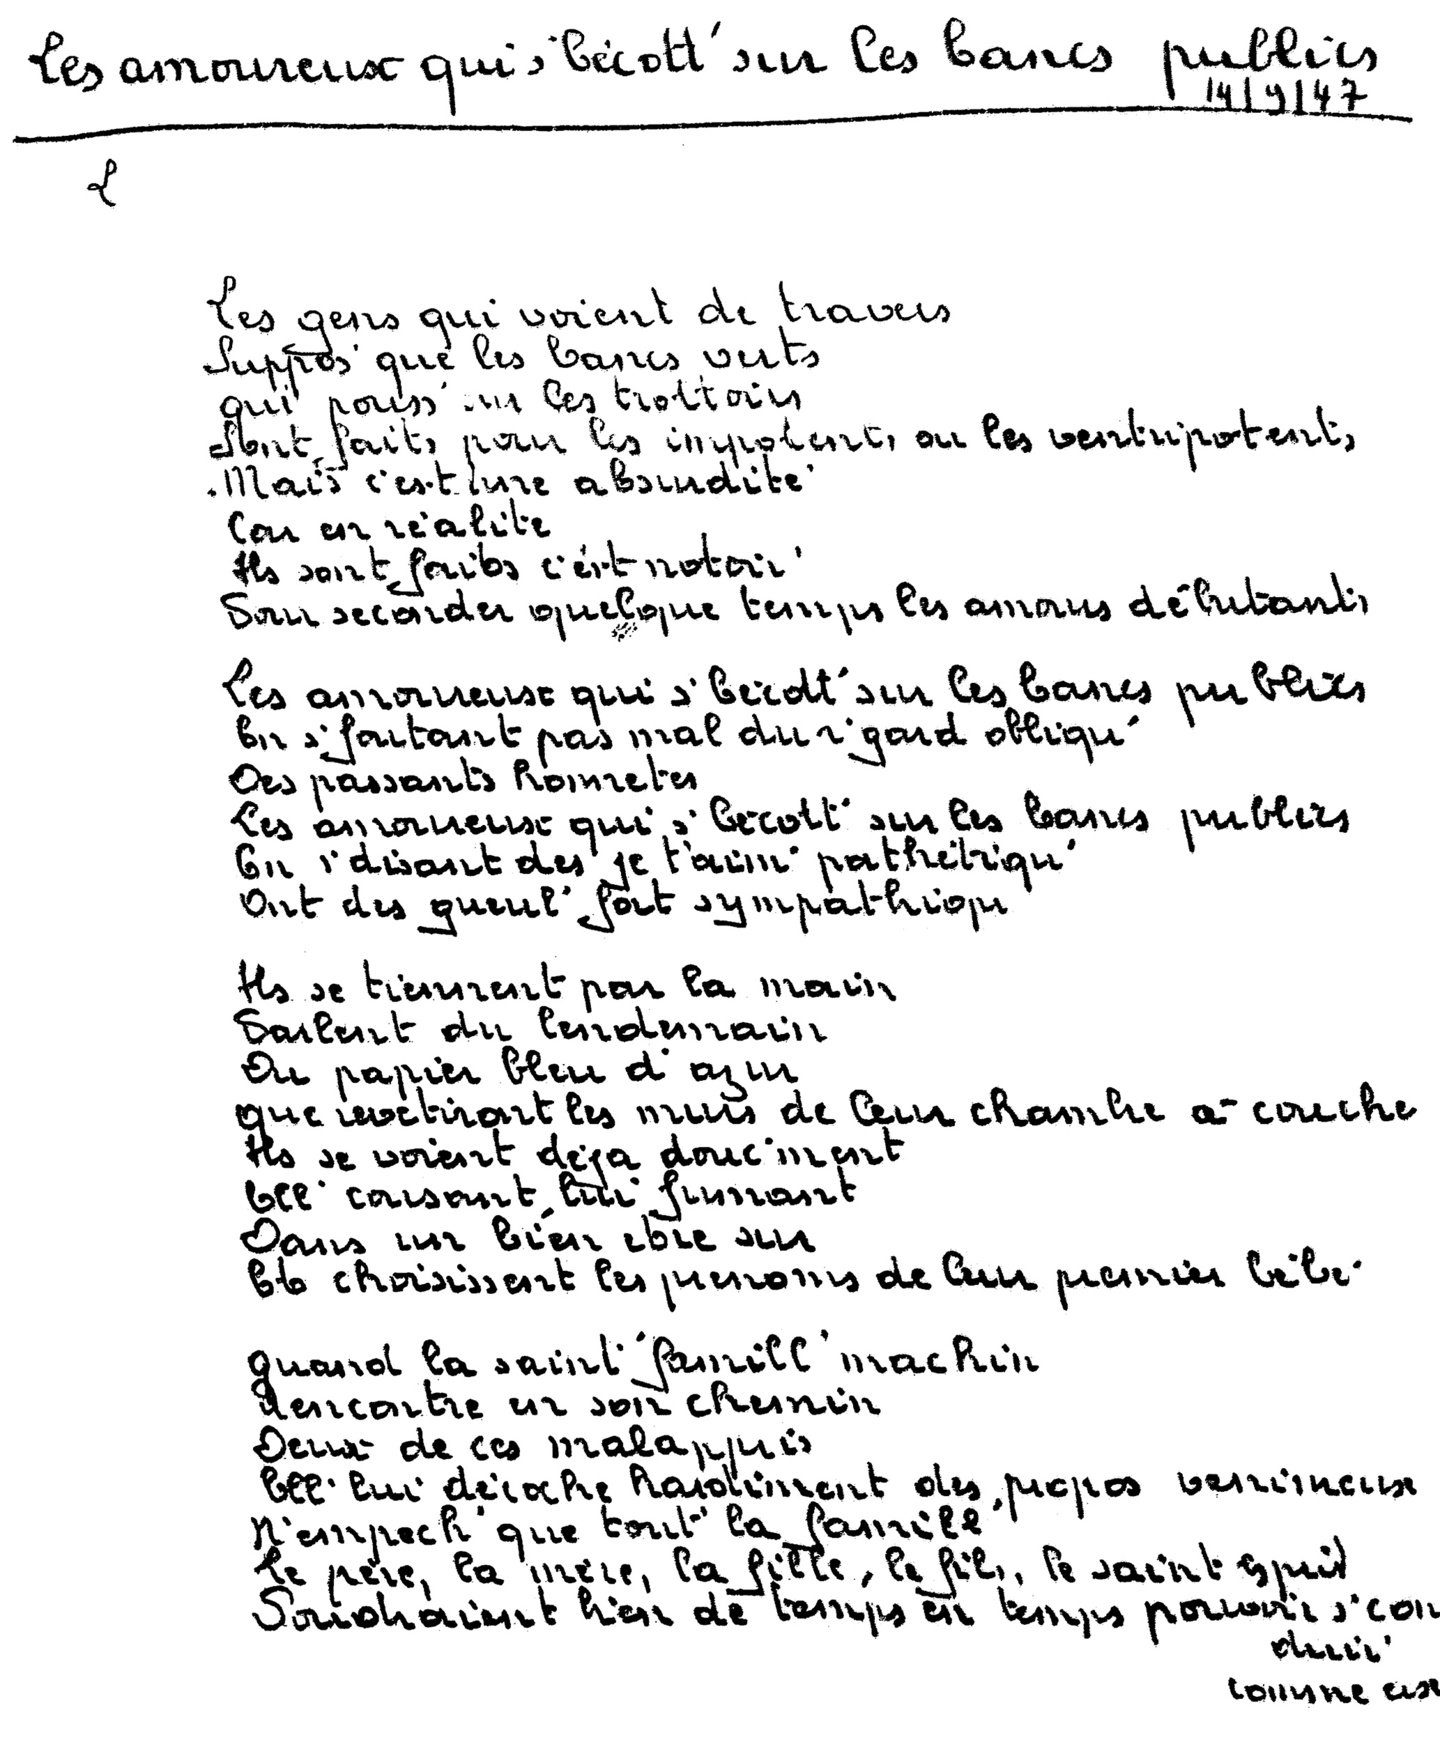 Les amoureux qui s'bécott' sur les bancs publics
14/9/47
L
Les gens qui voient de travers
Suppos' que les bancs verts
qui pouss' sur les trottoirs
Sont faits pour les impotents ou les ventripotents
Mais c'est une absurdité
Car en réalité
Ils sont faits c'est notoir'
Pour seconder quelque temps les amours débutants
Les amoureux qui s'bécott' sur les bancs publics
En s'foutant pas mal du r'gard obliqu'
Des passants honnetes
Les amoureux qui s'bécott' sur les bancs publics
En s'disant des je t'aim' pathétiqu'
Ont des gueul' fort sympathiqu
Ils se tiennent par la main
Parlent du lendemain
Du papier bleu d'azur
que revetiront les murs de leur chambre a coucher
Ils se voient deja douc'ment
Ell' cousant, lui fumant
Dans un bien etre sur
Et choisissent les prenoms de leur premier bébé
quand la saint' famill' machin
Rencontre en son chemin
Deux de ces malappris
Ell' lui décoche hardiment des propos venimeux
N'empech' que tout' la famill'
Le père, la mère, la fille, le fils, le saint esprit
Souhaient bien de temps en temps pouvoir s'con
duir'
comme eux